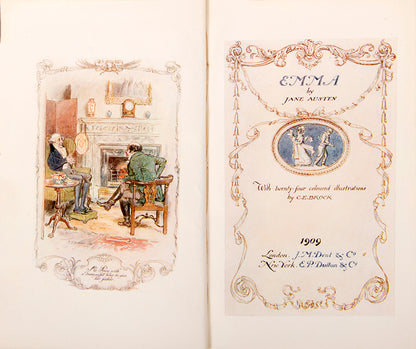 EMMA
by
JANE AUSTEN
With twenty-four coloured illustrations
by C.E. BROCK
1909
London. J. M. Dent & Co
New York. E. P. Dutton & Co